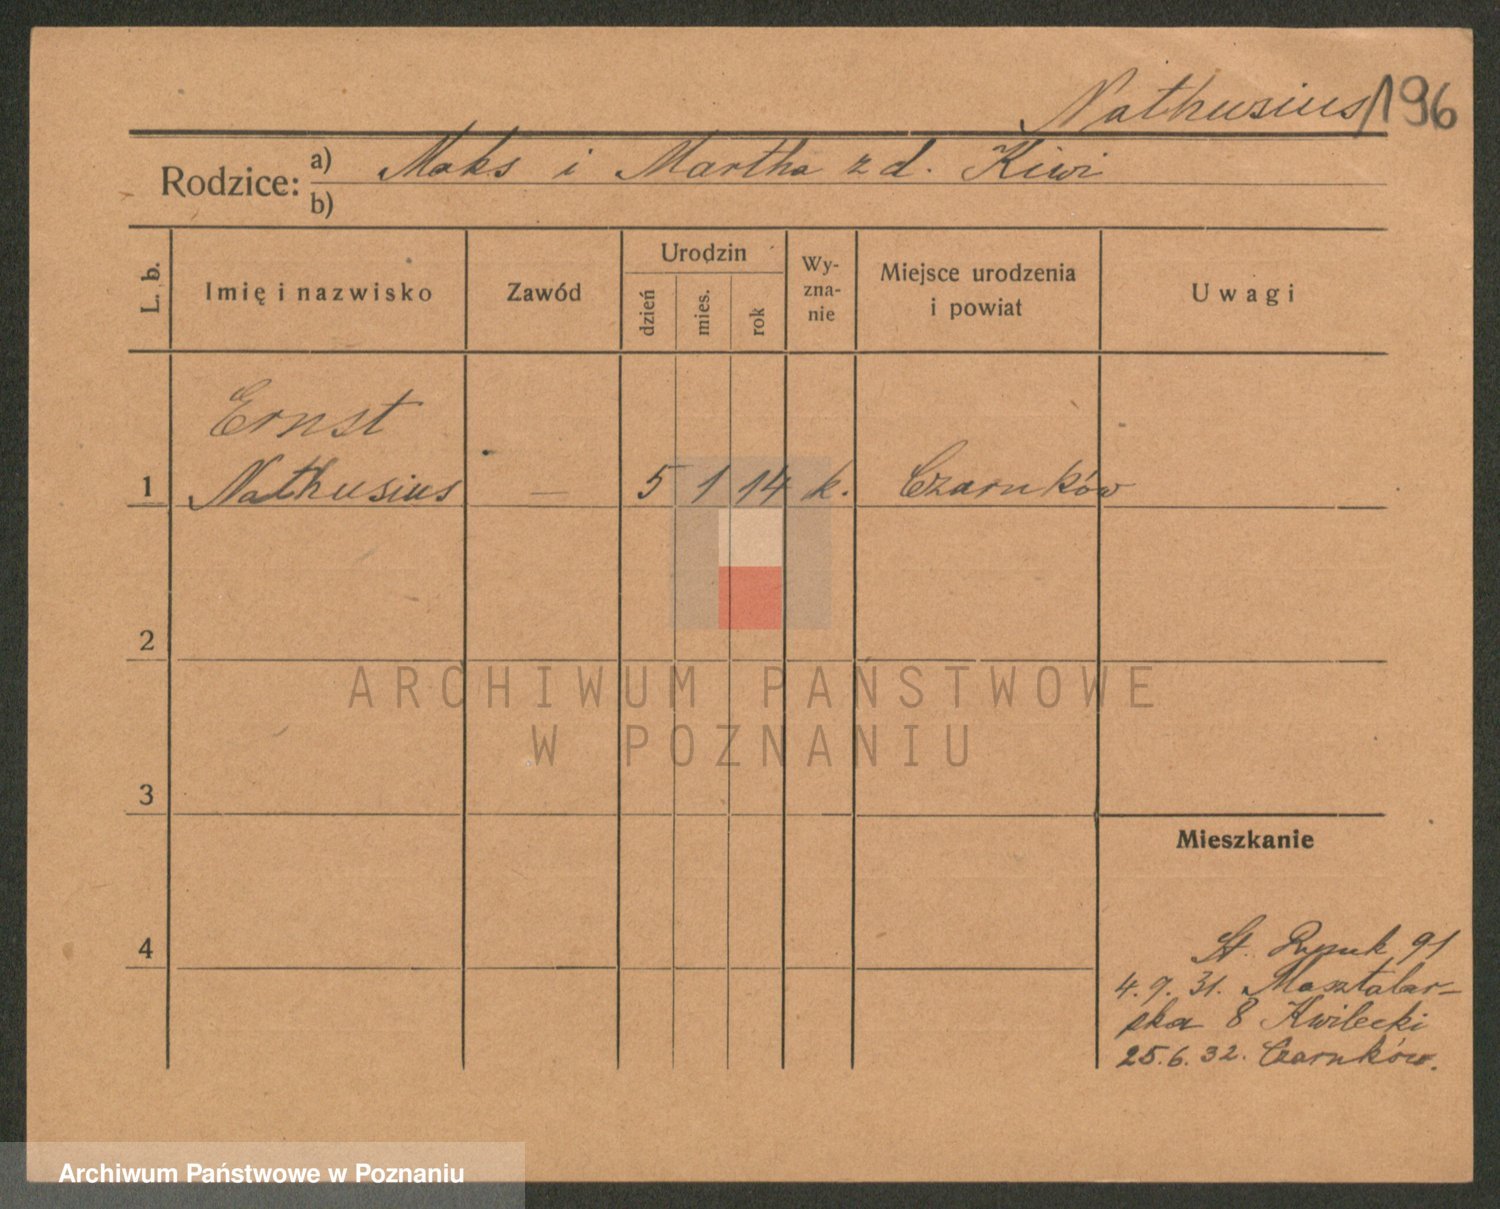 Nathusius/196
Rodzice: a) Maks i Martha z d. Kiwi
b)
L. b.
Imię i nazwisko
Zawód
Urodzin
dzień
mies.
rok
Wy-
zna-
nie
Miejsce urodzenia
i powiat
Uwagi
Ernst
1 Nathusius — 5 1 14 k. Czarnków
2
ARCHIWUM PAŃSTWOWE
W POZNANIU
3
Mieszkanie
4
St. Rynek 91
4. 9. 31. Masztalar-
ska 8 Kwilecki
25.6.32. Czarnków.
Archiwum Państwowe w Poznaniu